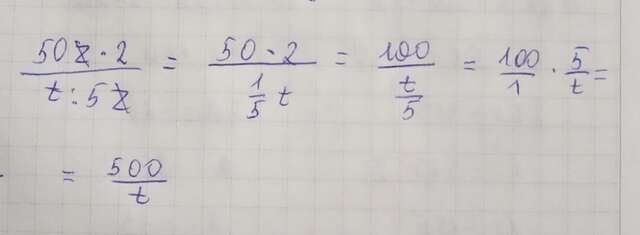 50z · 2 / t : 5z = 50 · 2 / 1/5 t = 100 / t/5 = 100/1 · 5/t =
= 500/t